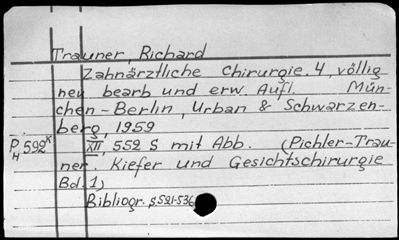 Trauner, Richard
Zahnärztliche Chirurgie. 4, völlig
neu bearb und erw. Aufl. Mün-
chen - Berlin, Urban & Schwarzen-
berg, 1959
P 592 K
H
XII, 552 S mit Abb. (Pichler-Trau-
ner. Kiefer und Gesichtschirurgie
Bd. 1)
Bibliogr. S.521-536